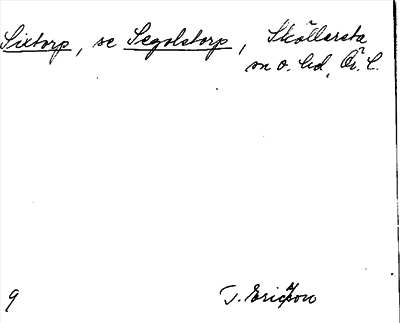 Sixtorp, se Segolstorp, Sköllersta
sn o. hd, Ör. l.
9
T. Ericsson